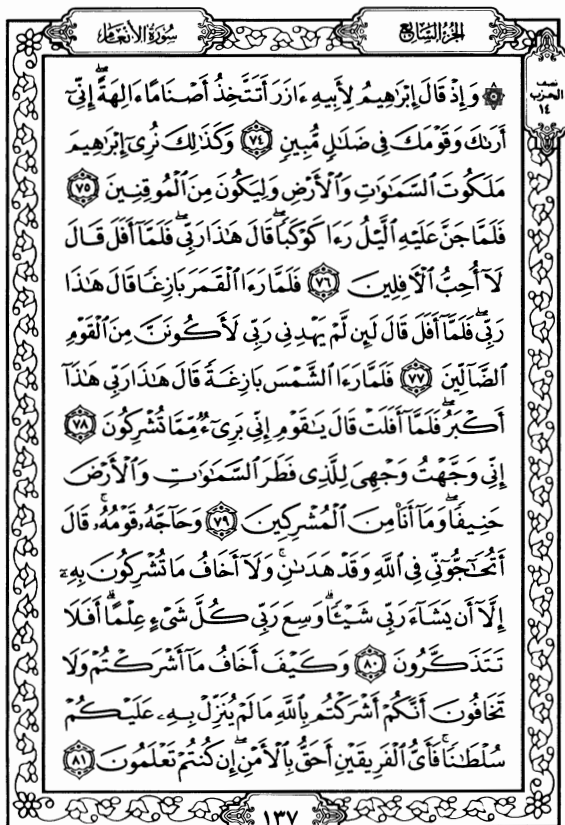 الجزء السابع
سورة الأنعام
۞ وَإِذْ قَالَ إِبْرَٰهِيمُ لِأَبِيهِ ءَازَرَ أَتَتَّخِذُ أَصْنَامًا ءَالِهَةً ۖ إِنِّىٓ
أَرَىٰكَ وَقَوْمَكَ فِى ضَلَٰلٍ مُّبِينٍ ٧٤ وَكَذَٰلِكَ نُرِىٓ إِبْرَٰهِيمَ
مَلَكُوتَ ٱلسَّمَٰوَٰتِ وَٱلْأَرْضِ وَلِيَكُونَ مِنَ ٱلْمُوقِنِينَ ٧٥
فَلَمَّا جَنَّ عَلَيْهِ ٱلَّيْلُ رَءَا كَوْكَبًا ۖ قَالَ هَٰذَا رَبِّى ۖ فَلَمَّآ أَفَلَ قَالَ
لَآ أُحِبُّ ٱلْءَافِلِينَ ٧٦ فَلَمَّا رَءَا ٱلْقَمَرَ بَازِغًا قَالَ هَٰذَا
رَبِّى ۖ فَلَمَّآ أَفَلَ قَالَ لَئِن لَّمْ يَهْدِنِى رَبِّى لَأَكُونَنَّ مِنَ ٱلْقَوْمِ
ٱلضَّآلِّينَ ٧٧ فَلَمَّا رَءَا ٱلشَّمْسَ بَازِغَةً قَالَ هَٰذَا رَبِّى هَٰذَآ
أَكْبَرُ ۖ فَلَمَّآ أَفَلَتْ قَالَ يَٰقَوْمِ إِنِّى بَرِىٓءٌ مِّمَّا تُشْرِكُونَ ٧٨
إِنِّى وَجَّهْتُ وَجْهِىَ لِلَّذِى فَطَرَ ٱلسَّمَٰوَٰتِ وَٱلْأَرْضَ
حَنِيفًا ۖ وَمَآ أَنَا۠ مِنَ ٱلْمُشْرِكِينَ ٧٩ وَحَآجَّهُۥ قَوْمُهُۥ ۚ قَالَ
أَتُحَٰٓجُّوٓنِّى فِى ٱللَّهِ وَقَدْ هَدَىٰنِ ۚ وَلَآ أَخَافُ مَا تُشْرِكُونَ بِهِۦٓ
إِلَّآ أَن يَشَآءَ رَبِّى شَيْـًٔا ۗ وَسِعَ رَبِّى كُلَّ شَىْءٍ عِلْمًا ۗ أَفَلَا
تَتَذَكَّرُونَ ٨٠ وَكَيْفَ أَخَافُ مَآ أَشْرَكْتُمْ وَلَا
تَخَافُونَ أَنَّكُمْ أَشْرَكْتُم بِٱللَّهِ مَا لَمْ يُنَزِّلْ بِهِۦ عَلَيْكُمْ
سُلْطَٰنًا ۚ فَأَىُّ ٱلْفَرِيقَيْنِ أَحَقُّ بِٱلْأَمْنِ ۖ إِن كُنتُمْ تَعْلَمُونَ ٨١
نصف
الحزب
١٤
١٣٧